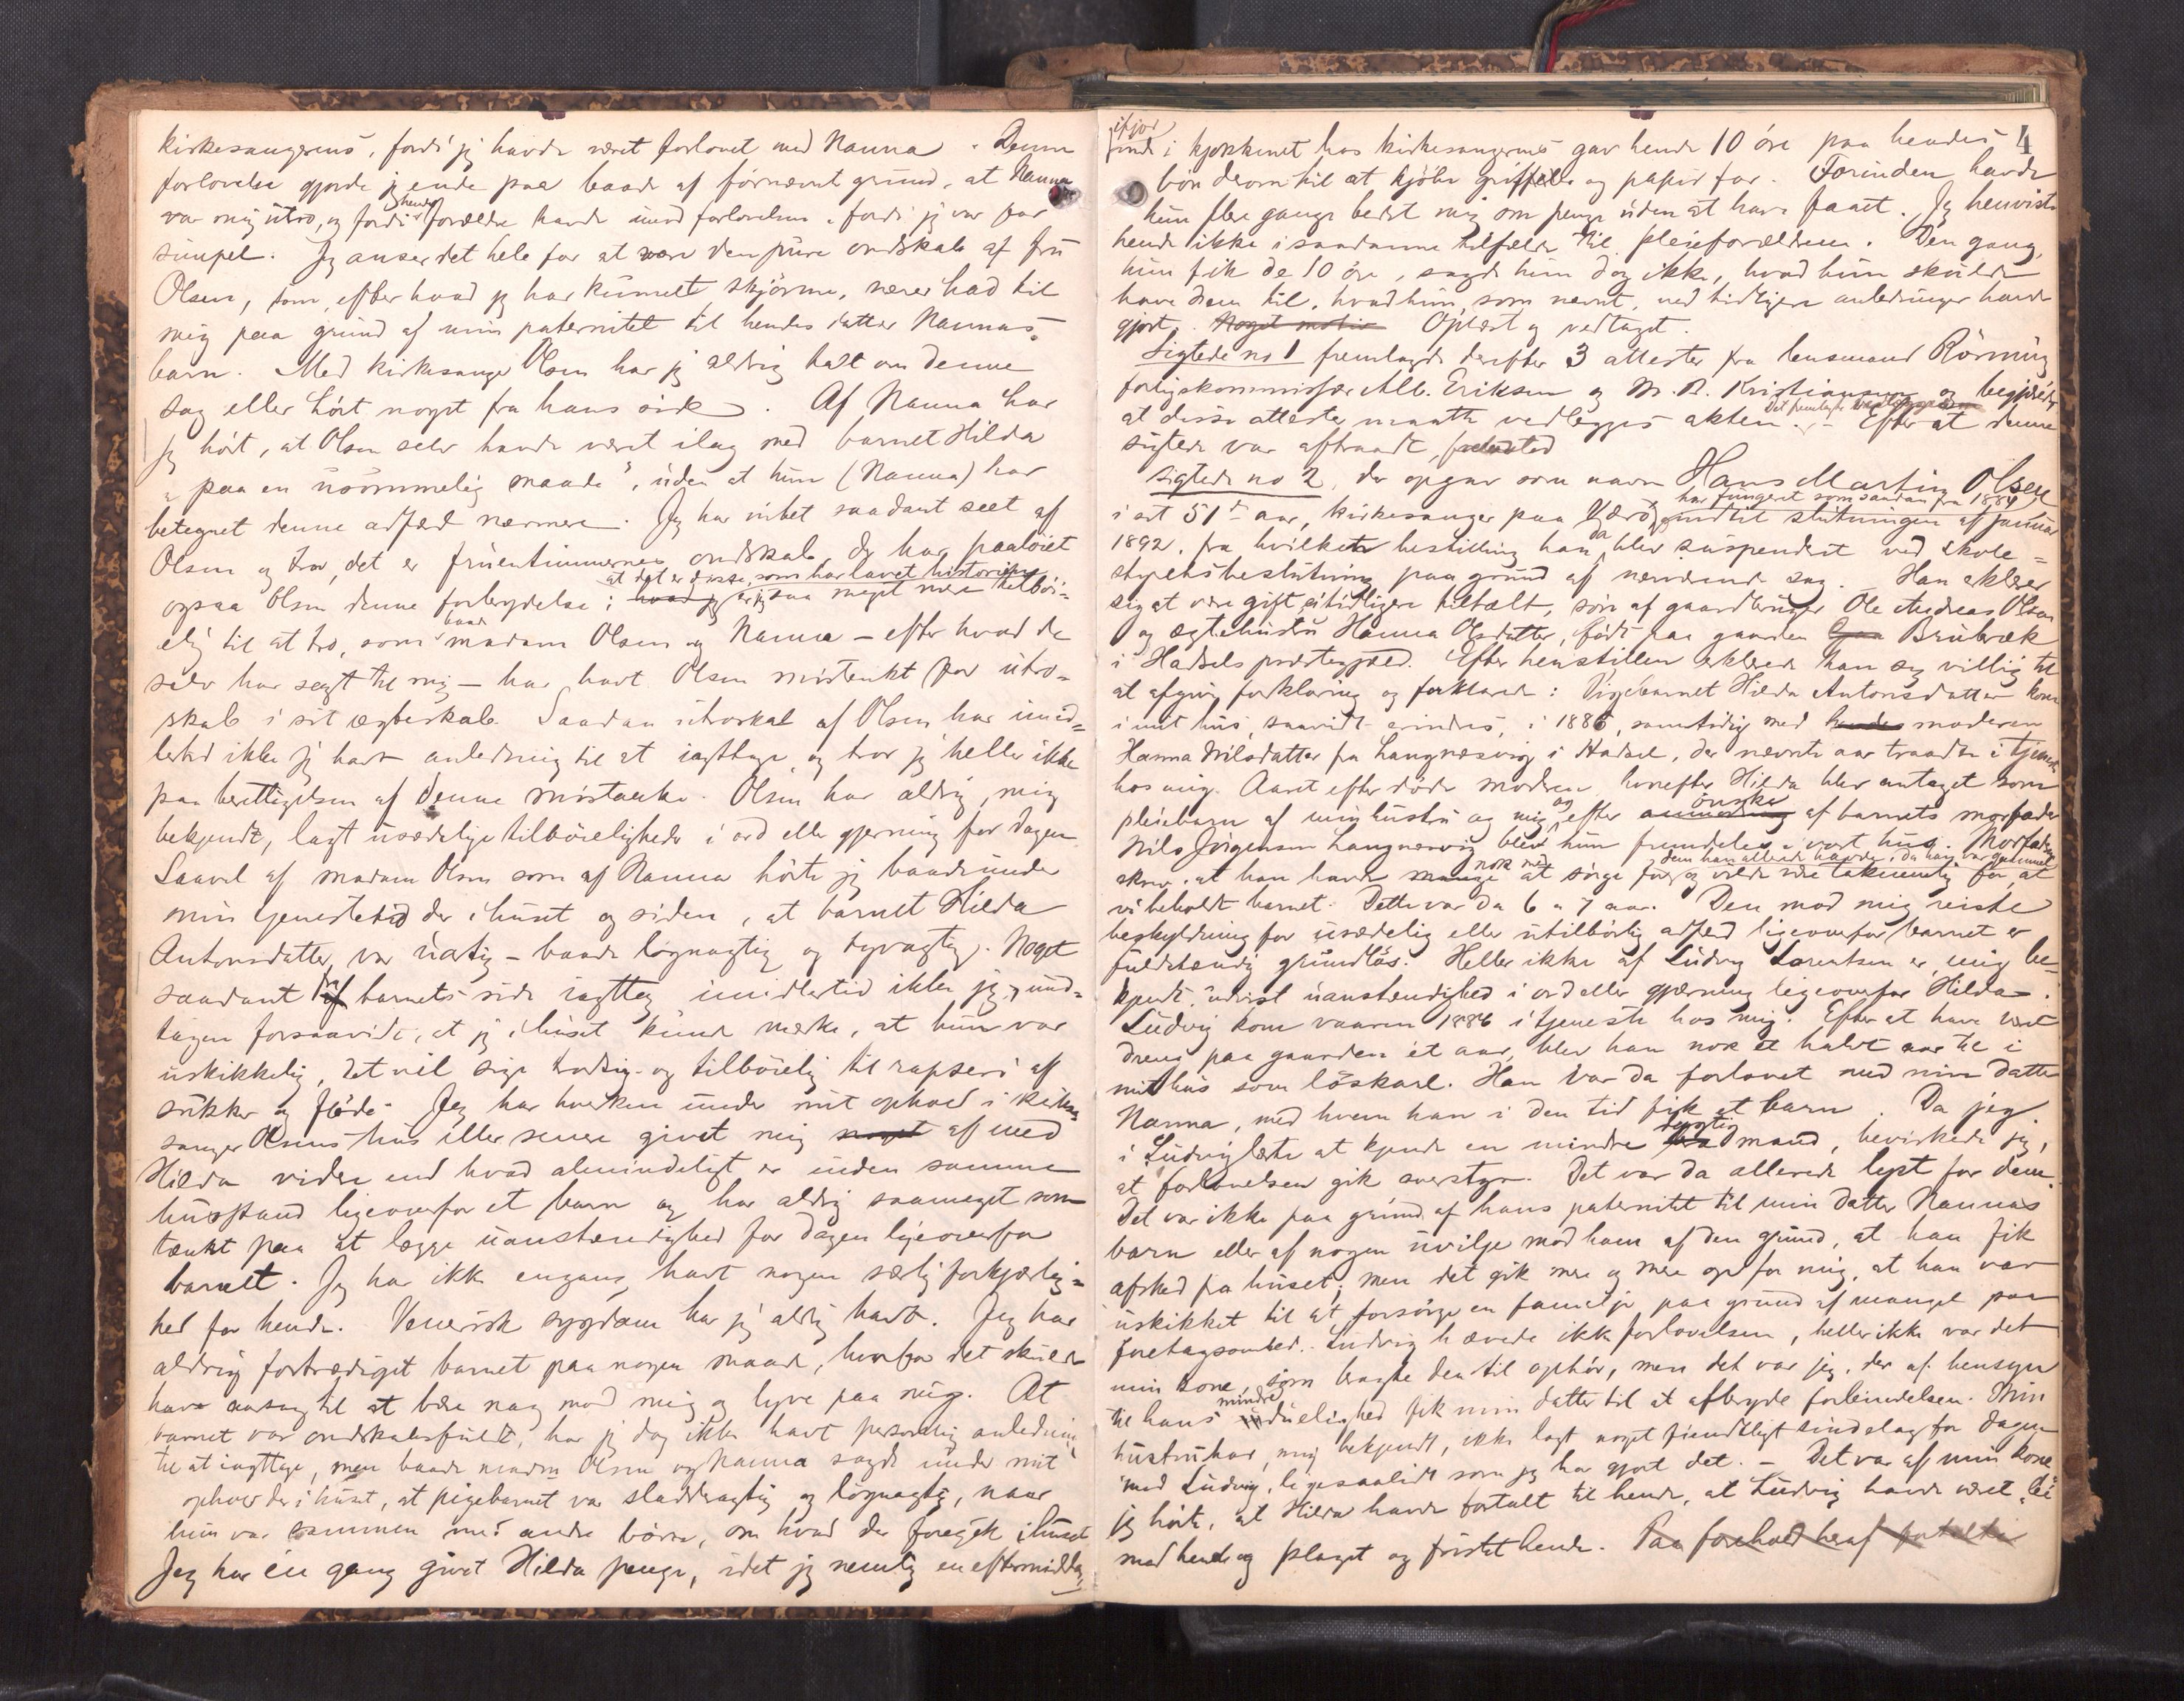 kirkesangerens, fordi jeg havde været forlovet med Nanna. Denne
forlovelse gjorde jeg ende paa baade af førnævnt grund, at Nanna
var mig utro, og fordi hendes forældre havde imod forlovelsen, fordi jeg var for
simpel. Jeg anser det hele for at være den pure ondskab af fru
Olsen, som, efter hvad jeg har kunnet skjønne, nærer had til
mig paa grund af min paternitet til hendes datter Nannas
barn. Med kirkesanger Olsen har jeg aldrig talt om denne
sag eller hørt noget fra hans side. Af Nanna har
jeg hørt, at Olsen selv havde været ilag med barnet Hilda
"paa en usømmelig maade", uden at hun (Nanna) har
betegnet denne adfærd nærmere. Jeg har intet saadant seet af
Olsen og tror, det er fruentimmernes ondskab, der har paaløiet
ogsaa Olsen denne forbrydelse; hvad jeg at det er disse, som har lavet historien, er jeg saa meget mere tilbøi=
elig til at tro, som baade madam Olsen og Nanna – efter hvad de
selv har sagt til mig – har havt Olsen mistænkt for utro=
skab i sit ægteskab. Saadan utroskab af Olsen har imid=
lertid ikke jeg havt anledning til at iagttage, og tror jeg heller ikke
paa berettigelsen af denne mistanke. Olsen har aldrig, mig
bekjendt, lagt usædelige tilbøieligheder i ord eller gjerning for dagen.
Saavel af madam Olsen som af Nanna hørte jeg baade under
min tjenestetid der i huset og siden, at barnet Hilda
Antonsdatter, var uartig – baade løgnagtig og tyvagtig. Noget
saadant fra barnets side iagttog imidlertid ikke jeg, und=
tagen forsaavidt, at jeg i huset kunde mærke, at hun var
uskikkelig, det vil sige trodsig og tilbøielig til rapseri af
sukker og fløde. Jeg har hverken under mit ophold i kirke
sanger Olsens hus eller senere givet mig noget af med
Hilda videre end hvad almindeligt er inden samme
husstand ligeoverfor et barn og har aldrig saameget som
tænkt paa at lægge uanstændighed for dagen ligeoverfor
barnet. Jeg har ikke engang havt nogen særlig forkjærlig=
hed for hende. Venerisk sygdom har jeg aldrig havt. Jeg har
aldrig fortrædiget barnet paa nogen maade, hvorfor det skulde
have aarsag til at bære nag mod mig og lyve paa mig. At
barnet var ondskabsfuldt, har jeg dog ikke havt personlig anledning
til at iagttage, men baade madam Olsen og Nanna sagde under mit
ophold der i huset, at pigebarnet var sladdragtig og løgnagtig, naar
hun var sammen med andre børn, om hvad der foregik i huset
Jeg har én gang givet Hilda penge, idet jeg nemlig en eftermiddag
4
ifjor
inde i kjøkkenet hos kirkesangerens gav hende 10 øre paa hendes
bøn derom til at kjøbe griffeler og papir for. Forinden havde
hun flere gange bedet mig om penge uden at have faaet. Jeg henviste
hende ikke i saadanne tilfælde til pleieforældrene. Den gang,
hun fik de 10 øre, sagde hun dog ikke, hvad hun skulde
have dem til, hvad hun, som nævnt, ved tidligere anledninger havde
gjort. Noget motiv Oplæst og vedtaget.
Sigtede no 1 fremlagde derefter 3 attester fra lensmand Rørming
forligskommissær Alb. Eriksen og M. A. Kristiansen og begjærede
at disse attester maatte vedlægges akten. Det fremlagte Efter at denne
sigtede var aftraadt, fremsted
Sigtede no 2, der opgav som navn Hans Martin Olsen
i sit 51de aar, kirkesanger paa Værø, har fungeret som saadan fra 1884 indtil slutningen af januar
1892, fra hvilken bestilling han da blev suspenderet ved skole=
styrelsbeslutning paa grund af nærværende sag. Han erklærer
sig at være gift, ei tidligere tiltalt, søn af gaardbruger Ole Andreas Olsen
og ægtehustru Hanna Olsdatter, født paa gaarden Bruvæk
i Hadsels præstegjæld. Efter henstillen erklærede han sig villig til
at afgive forklaring og forklarede: Pigebarnet Hilda Antonsdatter kom
i mit hus, saavidt erindres, i 1886, samtidig med hendes moderen
Hanna Nilsdatter fra Langnæsvig i Hadsel, der nævnte aar traadte i tjeneste
hos mig. Aaret efter døde moderen, hvorefter Hilda blev antaget som
pleiebarn af min hustru og mig og efter anmodning ønske af barnets morfader
Nils Jørgensen Langnæsvig blev hun fremdeles i vort hus. Morfaderen
skrev, at han havde mange nok med at sørge for dem han allerede havde, da han var gammel og vilde være taknemlig for, at
vi beholdt barnet. Dette var da 6 a 7 aar. Den mod mig reiste
beskyldning for usædelig eller utilbørlig adfærd ligeoverfor barnet er
fuldstændig grundløs. Heller ikke af Ludvig Lorentsen er mig be=
kjendt udvist uanstændighed i ord eller gjærning ligeoverfor Hilda.
Ludvig kom vaaren 1886 i tjeneste hos mig. Efter at have været
dreng paa gaarden et aar, blev han nok et halvt aar til i
mit hus som løskarl. Han var da forlovet med min datter
Nanna, med hvem han i den tid fik et barn. Da jeg
i Ludvig lærte at kjende en mindre dygtig mand, bevirkede jeg,
at forlovelsen gik overstyr. Det var da allerede lyst for dem.
Det var ikke paa grund af hans paternitet til min datter Nannas
barn eller af nogen uvilje mod ham af den grund, at han fik
afsked fra huset; men det gik mere og mere op for mig, at han var
uskikket til at forsørge en familje paa grund af mangel paa
foretagsomhed. Ludvig hævede ikke forlovelsen, heller ikke var det
min kone, som bragte den til ophør, men det var jeg, der af hensyn
til hans mindre duelighed fik min datter til at afbryde forbindelsen. Min
hustru har, mig bekjendt, ikke lagt noget fiendtligt sindelag for dagen
mod Ludvig, ligesaalidt som jeg har gjort det. – Det var af min kone
jeg hørte, at Hilda havde fortalt til hende, at Ludvig havde været
med hende og plaget og fristet hende. Paa forehold heraf fortalte